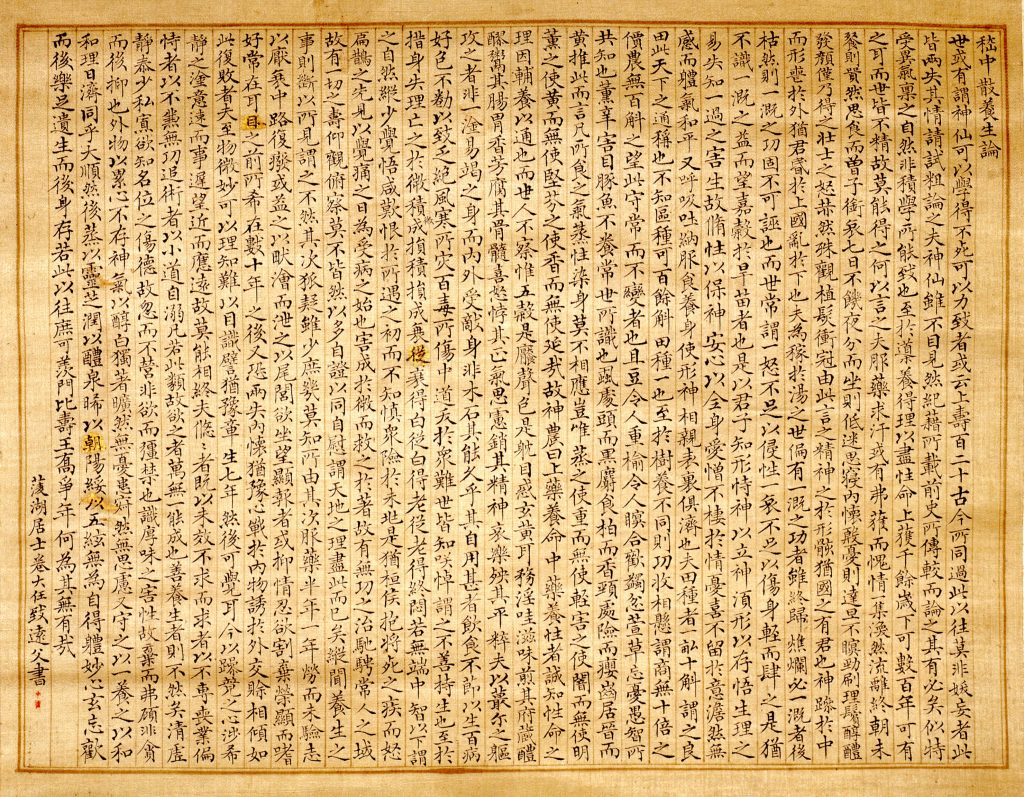 嵇中散養生論
世或有謂神仙可以學得不死可以力致者或云上壽百二十古今所同過此以往莫非妖妄者此
皆兩失其情請試粗論之夫神仙雖不目見然紀籍所載前史所傳較而論之其有必矣似特
受異氣稟之自然非積學所能致也至於導養得理以盡性命上獲千餘歲下可數百年可有
之耳而世皆不精故莫能得之何以言之夫服藥求汗或有弗獲而愧情集渙然流離終朝未
餐則囂然思食而曾子銜哀七日不饑夜分而坐則低迷思寢內懷殷憂則達旦不瞑勁刷理鬢醇醴
發顏僅乃得之壯士之怒赫然殊觀植髮衝冠由此言之精神之於形骸猶國之有君也神躁於中
而形喪於外猶君昏於上國亂於下也夫為稼於湯之世偏有一溉之功者雖終歸燋爛必一溉者後
枯然則一溉之功固不可誣也而世常謂一怒不足以侵性一哀不足以傷身輕而肆之是猶
不識一溉之益而望嘉穀於旱苗者也是以君子知形恃神以立神須形以存悟生理之
易失知一過之害生故脩性以保神安心以全身愛憎不棲於情憂喜不留於意澹然無
感而體氣和平又呼吸吐納服食養身使形神相親表裏俱濟也夫田種者一畝十斛謂之良
田此天下之通稱也不知區種可百餘斛田種一也至於樹養不同則功收相懸謂商無十倍之
價農無百斛之望此守常而不變者也且豆令人重榆令人瞑合歡蠲忿萱草忘憂愚智所
共知也薰辛害目豚魚不養常世所識也虱處頭而黑麝食柏而香頸處險而癭齒居晉而
黃推此而言凡所食之氣蒸性染身莫不相應豈唯蒸之使重而無使輕害之使闇而無使明
薰之使黃而無使堅芬之使香而無使延哉故神農曰上藥養命中藥養性者誠知性命之
理因輔養以通也而世人不察惟五穀是聲色是躭目惑玄黃耳務淫哇滋味煎其府藏醴
醪鬻其腸胃香芳腐其骨髓喜怒悖其正氣思慮銷其精神哀樂殃其平粹夫以蕞爾之軀
攻之者非一塗易竭之身而內外受敵身非木石其能久乎其自用甚者飲食不節以生百病
好色不勌以致乏絕風寒所灾百毒所傷中道夭於衆難世皆知咲悼謂之不善持生也至於
措身失理亡之於微積微成損積損成衰從衰得白從白得老從老得終悶若無端中智以下謂
之自然縱少覺悟咸歎恨於所遇之初而不知慎衆險於未兆是猶桓侯抱將死之疾而怒
扁鵲之先見以覺痛之日為受病之始也害成於微而救之於著故有無功之治馳騁常人之域
故有一切之壽仰觀俯察莫不皆然以多自證以同自慰謂天地之理盡此而已矣縱聞養生之
事則斷以所見謂之不然其次狐疑雖少庶幾莫知所由其次服藥半年一年勞而未驗志
以厭衰中路復廢或益之以畎澮而泄之以尾閭欲坐望顯報者或抑情忍欲割棄榮願而嗜
好常在耳目之前所希在數十年之後又恐兩失內懷猶豫心戰於內物誘於外交賒相傾如
此復敗者夫至物微妙可以理知難以目識譬猶豫章生七年然後可覺耳今以躁競之心涉希
靜之塗意速而事遲望近而應遠故莫能相終夫悠悠者既以未效不求而求者以不專喪業偏
恃者以不兼無功追術者以小道自溺凡若此類故欲之者萬無一能成也善養生者則不然矣清虛
靜泰少私寡欲知名位之傷德故忽而不營非欲而彊禁也識厚味之害性故棄而弗顧非貪
而後抑也外物以累心不存神氣以醇白獨著曠然無憂患寂然無思慮又守之以一養之以和
和理日濟同乎大順然後蒸以靈芝潤以醴泉晞以朝陽綏以五絃無為自得體妙心玄忘歡
而後樂足遺生而後身存若此以往庶可羨門比壽王喬爭年何為其無有哉
菱湖居士大任致遠父書